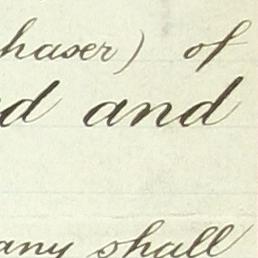 haser) of
d and
any shall